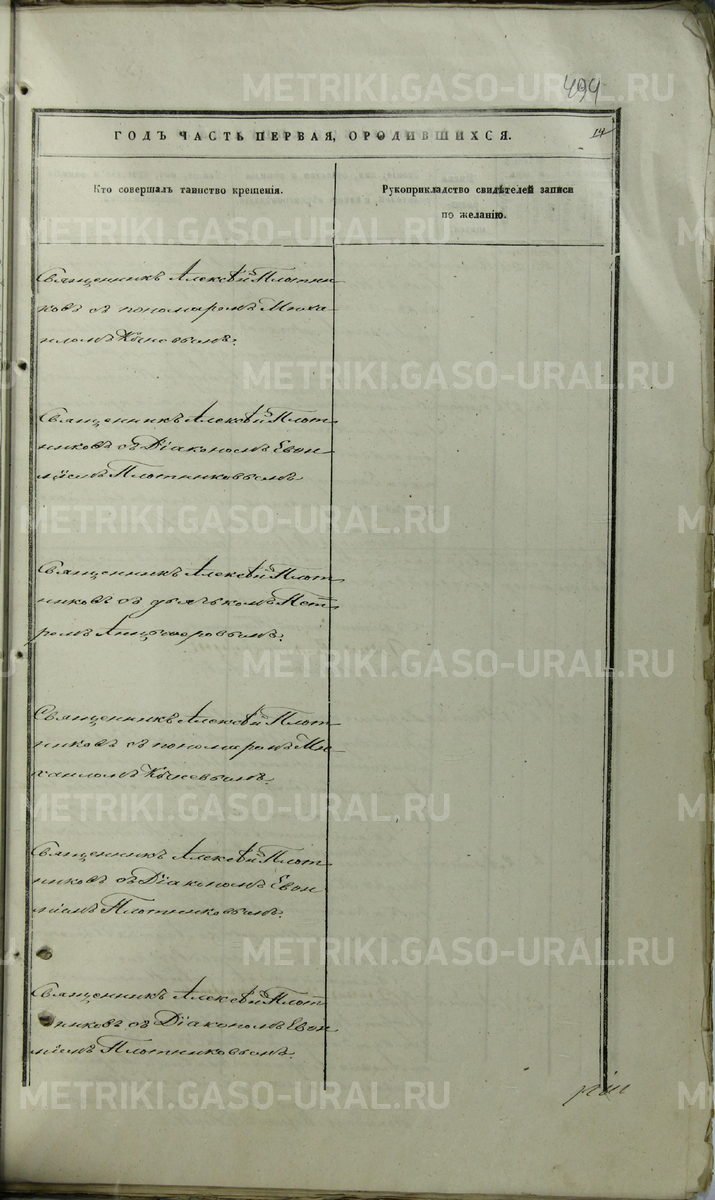 499
ГОДЪ ЧАСТЬ ПЕРВАЯ, О РОДИВШИХСЯ.
14
Кто совершалъ таинство крещенія.
Рукоприкладство свидѣтелей записи
по желанію.
Священникъ Алексѣй Плотни
ковъ съ пономаремъ Миха
иломъ
Священникъ Алексѣй Плот
никовъ съ Діакономъ Евѳи
міемъ Плотниковымъ
Священникъ Алексѣй Плот
никовъ съ дьячкомъ Пет
ромъ
Священникъ Алексѣй Плот
никовъ съ пономаремъ Ми
хаиломъ
Священникъ Алексѣй Плот
никовъ съ Діакономъ Евѳи
міемъ Плотниковымъ.
Священникъ Алексѣй Плот
никовъ съ Діакономъ Евѳи
міемъ Плотниковымъ.
METRIKI.GASO-URAL.RU
METRIKI.GASO-URAL.RU
METRIKI.GASO-URAL.RU
METRIKI.GASO-URAL.RU
METRIKI.GASO-URAL.RU
METRIKI.GASO-URAL.RU
METRIKI.GASO-URAL.RU
METRIKI.GASO-URAL.RU